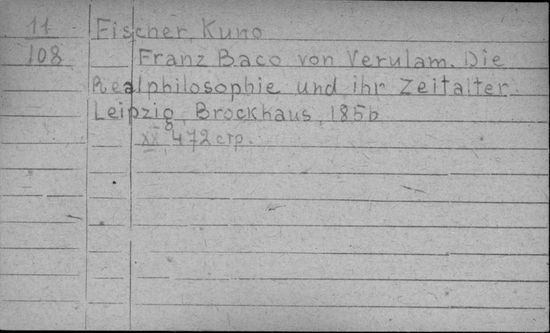 11 Fischer, Kuno
108 Franz Baco von Verulam. Die
Realphilosophie und ihr Zeitalter.
Leipzig, Brockhaus, 1856
XX 472 стр.